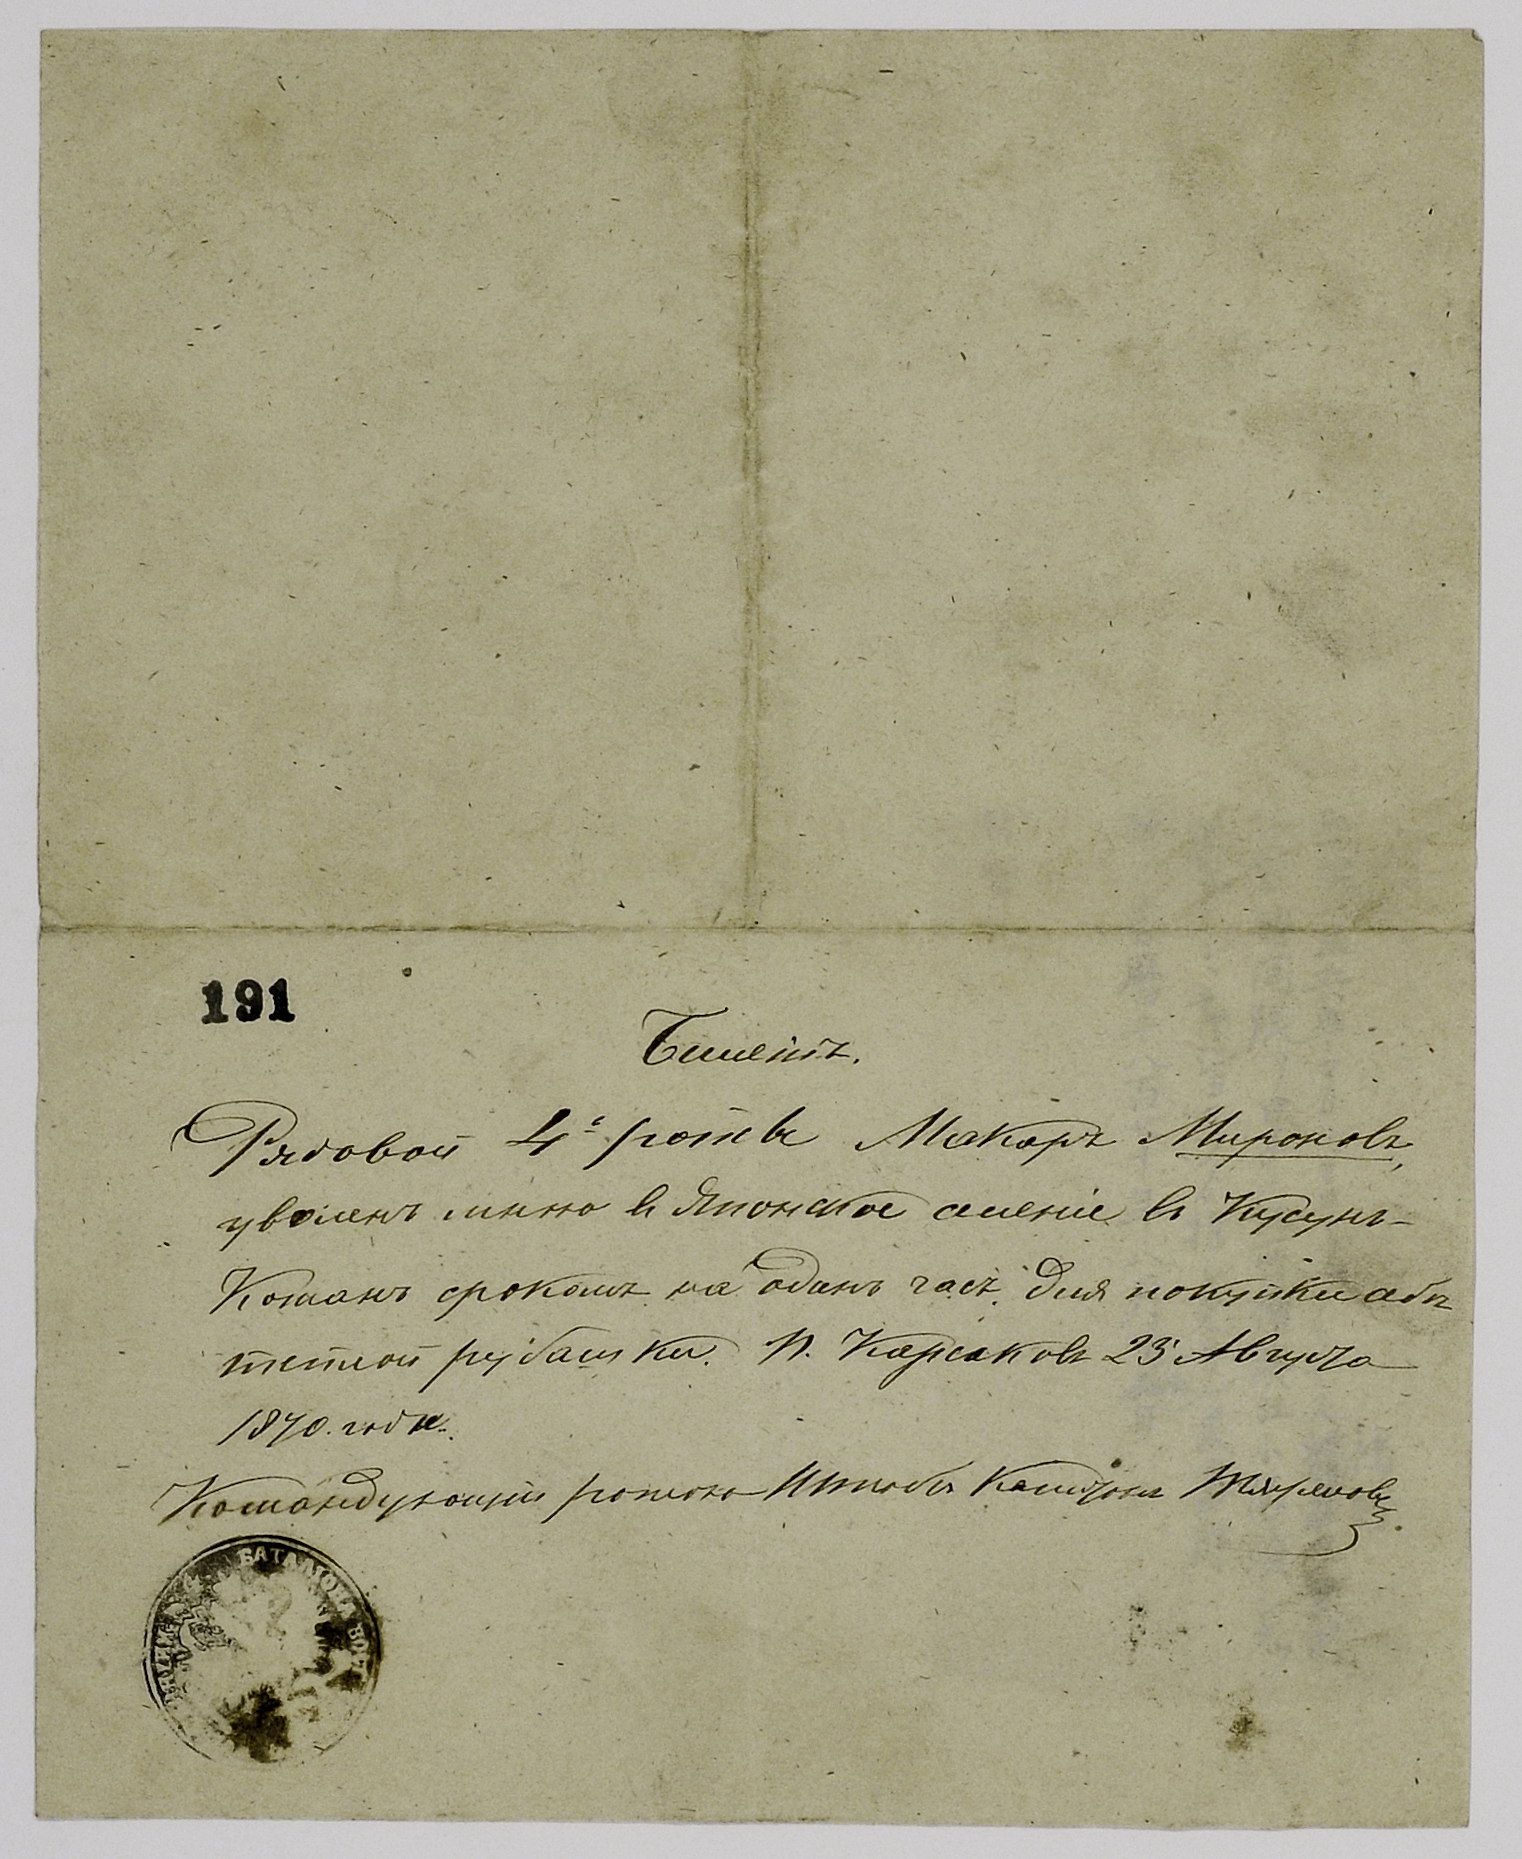 191
Билетъ.
Рядовой 4й роты Макаръ Мироновъ,
уволенъ мною въ Японское селеніе въ Кусунъ-
Котанъ срокомъ на одинъ часъ, для покупки
рубашки. П. Карсаковъ 23 Августа
1870. года.
Командующій ротою Штабсъ Капитанъ
БАТАЛІОНА